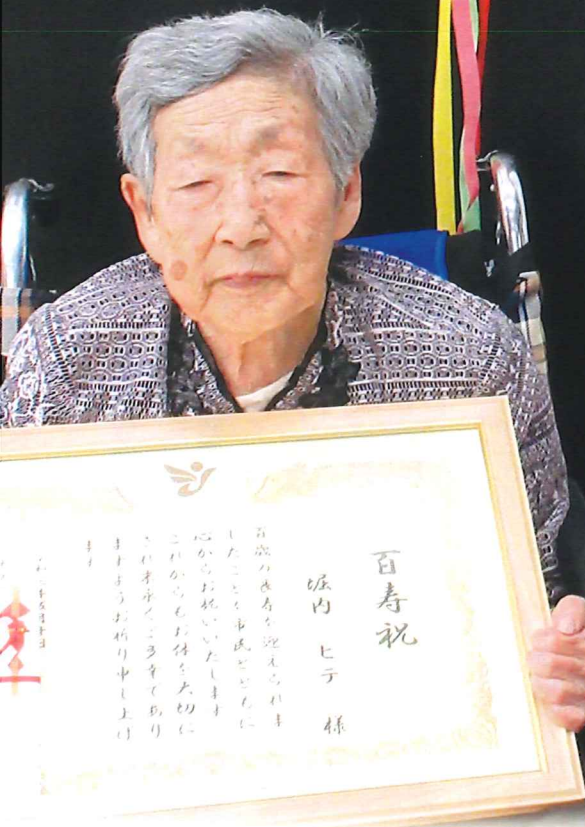 百寿祝
堀内 ヒデ 様
百歳の長寿を迎えられま
したことを市民とともに
心からお祝いいたします
これからもお体を大切に
され末永くご多幸であり
ますようお祈り申し上げ
ます